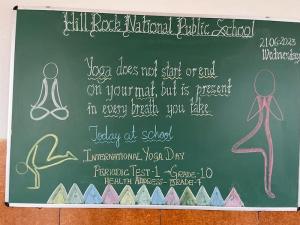 Hill Rock National Public School
21.06.2023
Wednesday
Yoga does not start or end
on your mat, but is present
in every breath you take.
Today at school
International Yoga Day
Periodic Test-1 - Grade-10
Health Address - Grade-7